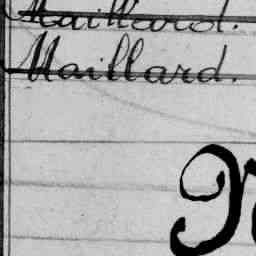 Maillard.
Maillard.